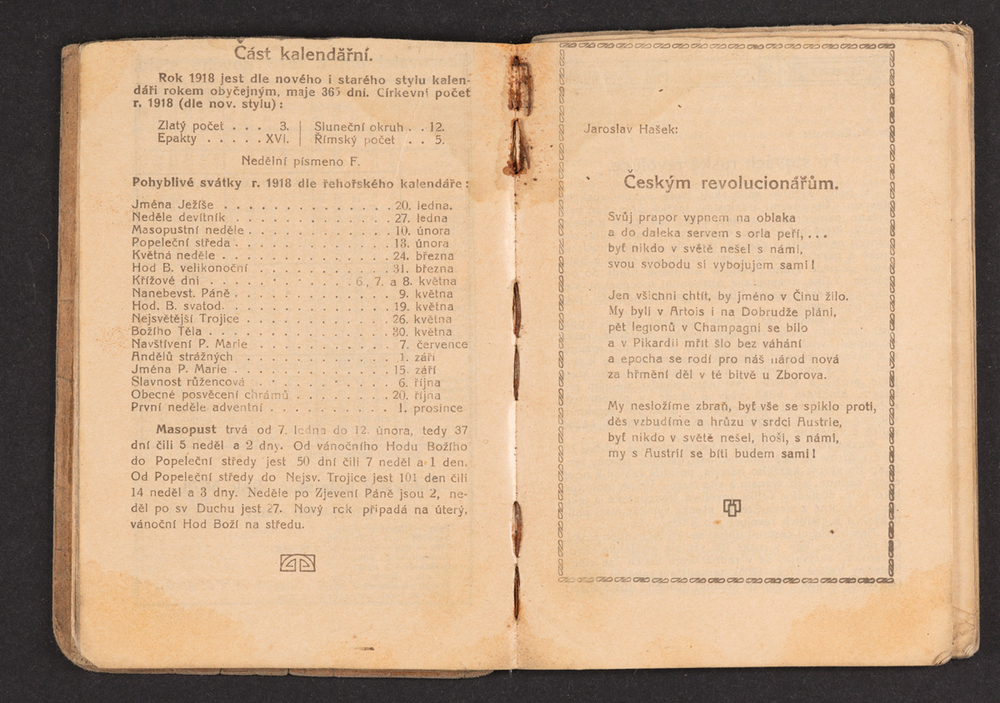 Část kalendářní.
Rok 1918 jest dle nového i starého stylu kalen-
dáři rokem obyčejným, maje 365 dní. Církevní počet
r. 1918 (dle nov. stylu):
Zlatý počet . . . 3. | Sluneční okruh . . 12.
Epakty . . . . . XVI. | Římský počet . . 5.
Nedělní písmeno F.
Pohyblivé svátky r. 1918 dle řehořského kalendáře:
Jména Ježíše . . . . . . . . . . . . . 20. ledna.
Neděle devítník . . . . . . . . . . . . 27. ledna
Masopustní neděle . . . . . . . . . . . 10. února
Popeleční středa . . . . . . . . . . . . 13. února
Květná neděle . . . . . . . . . . . . . 24. března
Hod B. velikonoční . . . . . . . . . . 31. března
Křížové dni . . . . . . . . . . . 6., 7. a 8. května
Nanebevst. Páně . . . . . . . . . . . . 9. května
Hod. B. svatod. . . . . . . . . . . . . 19. května
Nejsvětější Trojice . . . . . . . . . . . 26. května
Božího Těla . . . . . . . . . . . . . . 30. května
Navštívení P. Marie . . . . . . . . . . 7. července
Andělů strážných . . . . . . . . . . . 1. září
Jména P. Marie . . . . . . . . . . . . 15. září
Slavnost růžencová . . . . . . . . . . 6. října
Obecné posvěcení chrámů . . . . . . . 20. října
První neděle adventní . . . . . . . . . 1. prosince
Masopust trvá od 7. ledna do 12. února, tedy 37
dní čili 5 neděl a 2 dny. Od vánočního Hodu Božího
do Popeleční středy jest 50 dní čili 7 neděl a 1 den.
Od Popeleční středy do Nejsv. Trojice jest 101 den čili
14 neděl a 3 dny. Neděle po Zjevení Páně jsou 2, ne-
děl po sv Duchu jest 27. Nový rok připadá na úterý,
vánoční Hod Boží na středu.
Jaroslav Hašek:
Českým revolucionářům.
Svůj prapor vypnem na oblaka
a do daleka servem s orla peří, . . .
byť nikdo v světě nešel s námi,
svou svobodu si vybojujem sami!
Jen všichni chtít, by jméno v Činu žilo.
My byli v Artois i na Dobrudže pláni,
pět legionů v Champagni se bilo
a v Pikardii mřít šlo bez váhání
a epocha se rodí pro náš národ nová
za hřmění děl v té bitvě u Zborova.
My nesložíme zbraň, byť vše se spiklo proti,
děs vzbudíme a hrůzu v srdci Austrie,
byť nikdo v světě nešel, hoši, s námi,
my s Austrií se bíti budem sami!